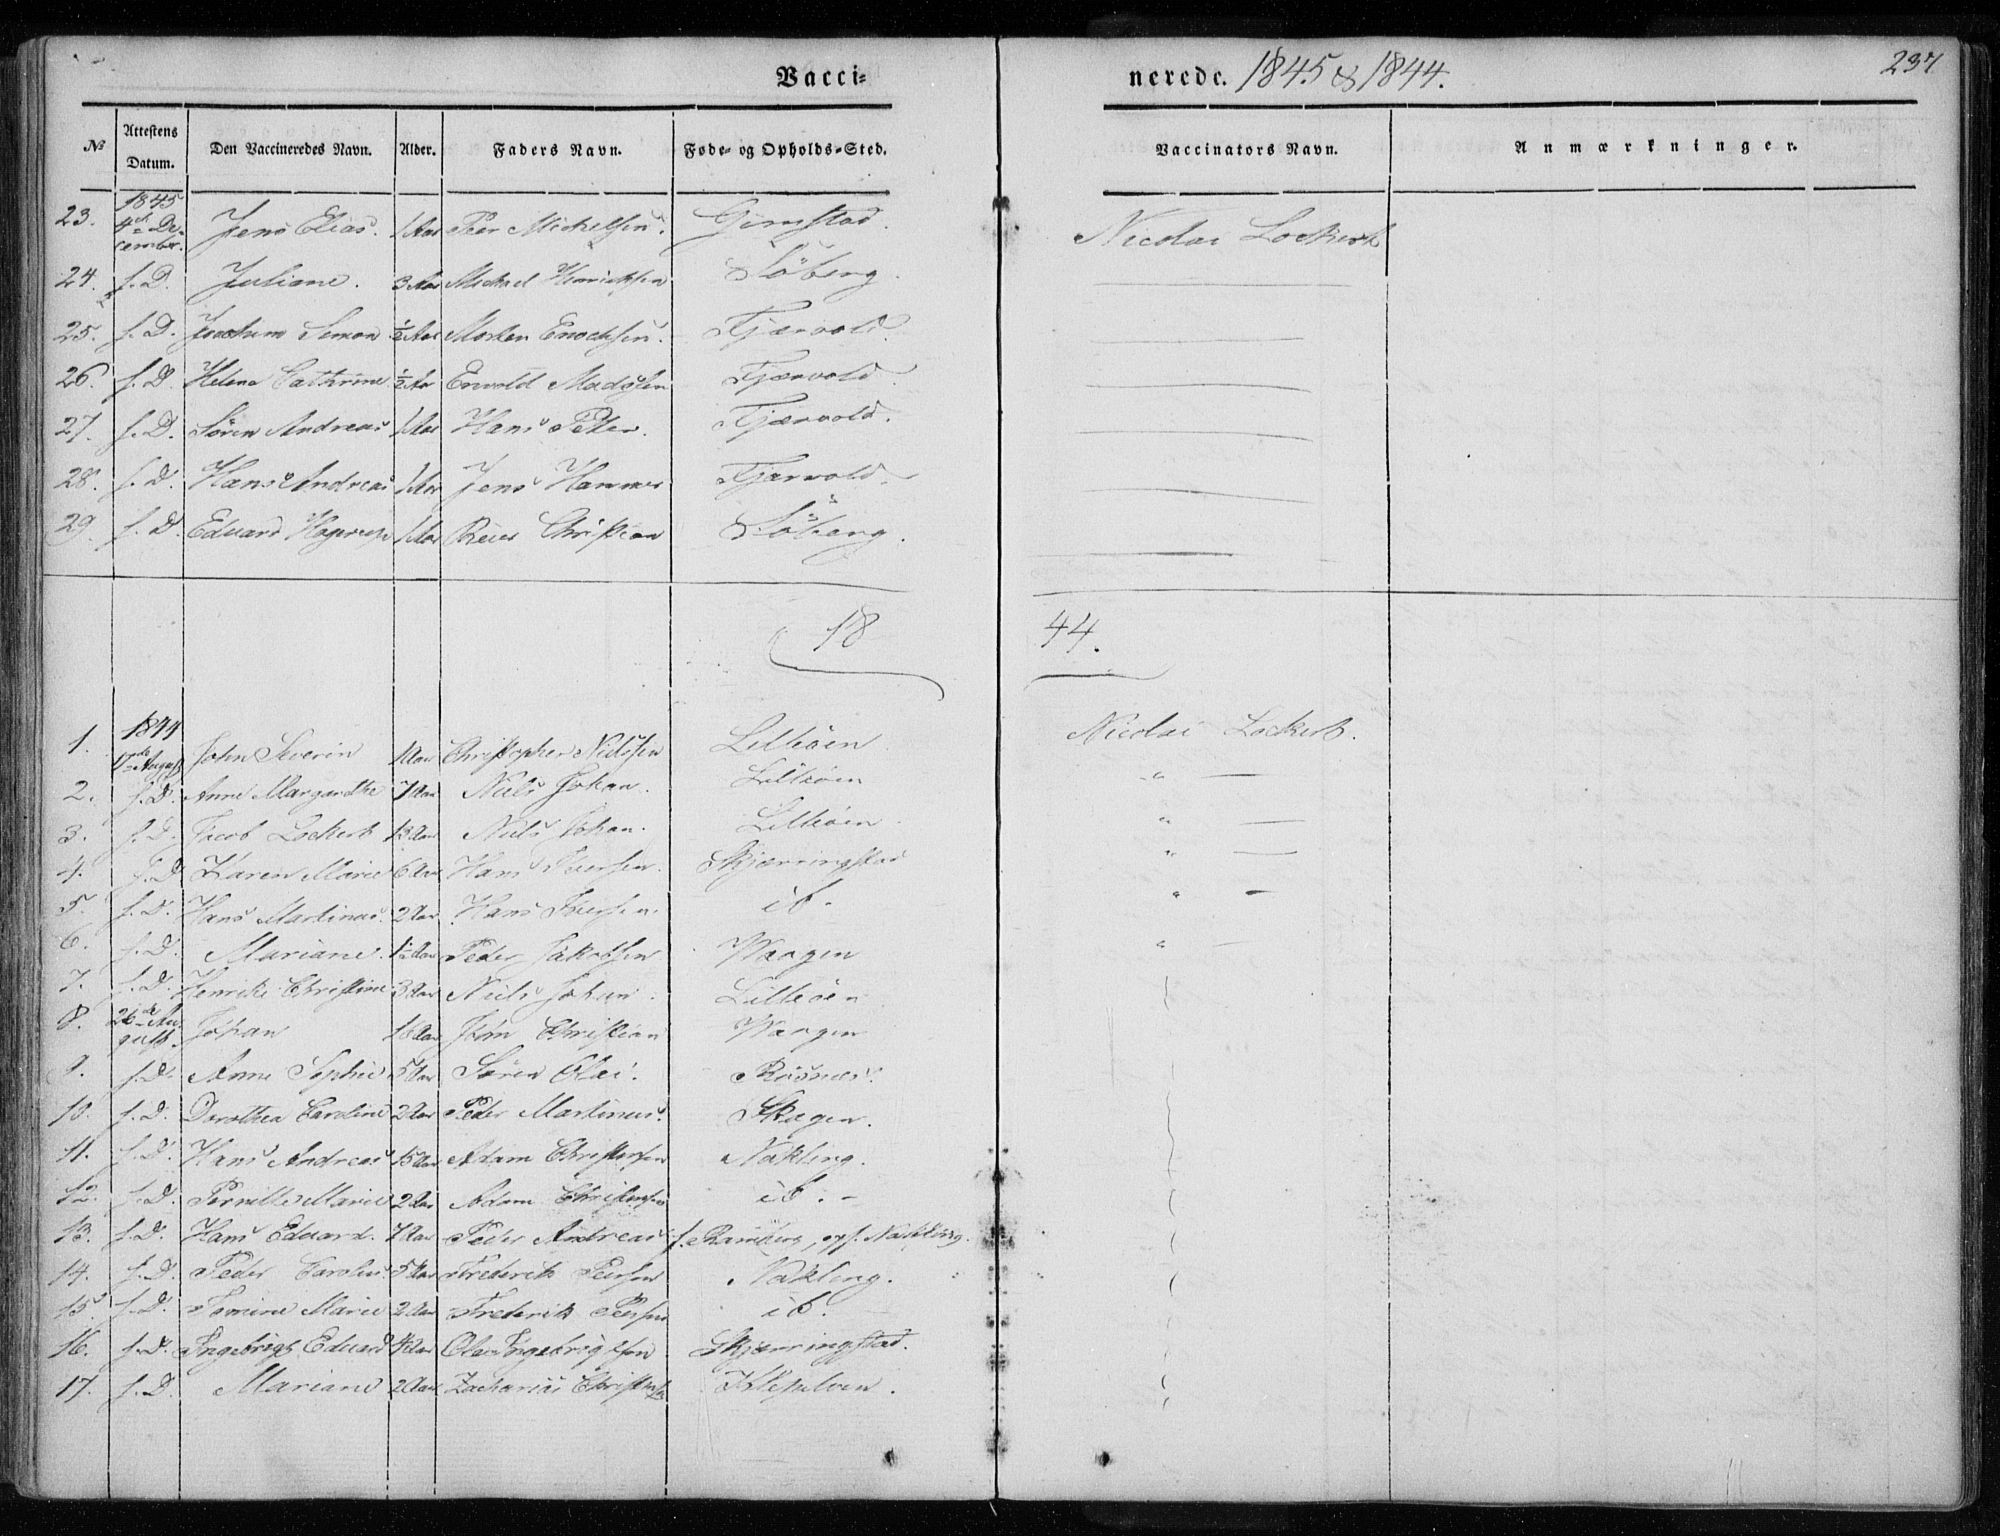 Vacci= nerede. 1845 & 1844. 237
No Attestens Datum. Den Vaccineredes Navn. Alder. Faders Navn. Føde= og Opholds=Sted. Vaccinators Navn. Anmærkninger.
23. 1845 4de December. Jens Elias. 1 Aar Peer Michelsen. Gimstad. Nicolai Lockert
24. f. D. Juliane. 3 Aar Michael Henrichsen Söberg.
25. f. D. Joachum Simon ½ Aar Morten Enochsen. Fjærvold.
26. f. D. Helena Cathrine ½ Aar Envold Madsen Fjærvold.
27. f. D. Sören Andreas 1 Aar Hans Peter. Fjærvold.
28. f. D. Hans Andreas 1 Aar Jens Hammer Fjærvold.
29. f. D. Eduard Hagerup 1 Aar Christian Söberg.
18 44.
1. 1844 17de August John Severin 1 Aar Christopher Nielssen Lilleöen Nicolai Lockert.
2. f. D. Anne Margarethe 7 Aar Niels Johan. Lilleöen " —
3. f. D. Jacob Lockert 13 Aar Niels Johan. Lilleöen. " —
4. f. D. Karen Marie 6 Aar Hans Iversen. Skjærringstad " —
5. f. D. Hans Martinus. 2 Aar Hans Iversen. ib. " —
6. f. D. Mariane. 1½ Aar Peder Jakobsen Waagen " —
7. f. D. Henrike Christine 3 Aar Niels Johan. Lilleöen
8. 26de August. Johan 16 Aar John Christian Waagen
9. f. D. Anne Sophie 5 Aar Sören Olai. Rösnes.
10. f. D. Dorothea Caroline 2 Aar Peder Martinus. Skagen.
11. f. D. Hans Andreas 15 Aar Adam Christensen Nakling.
12. f. D. Pernille Marie 2 Aar Adam Christensen ib. -
13. f. D. Hans Eduard. 7 Aar Peder Andreas f. Ramberg, opf. Nakling.
14. f. D. Peder Carolus 5 Aar Frederik Peersen Nakling.
15. f. D. Marie 2 Aar Frederik Peersen ib.
16. f. D. Ingebrigt Eduard 4 Aar Ole Ingebrigtsen Skjærringstad.
17. f. D. Mariane 2 Aar Zacharias Christensen Klepelven.